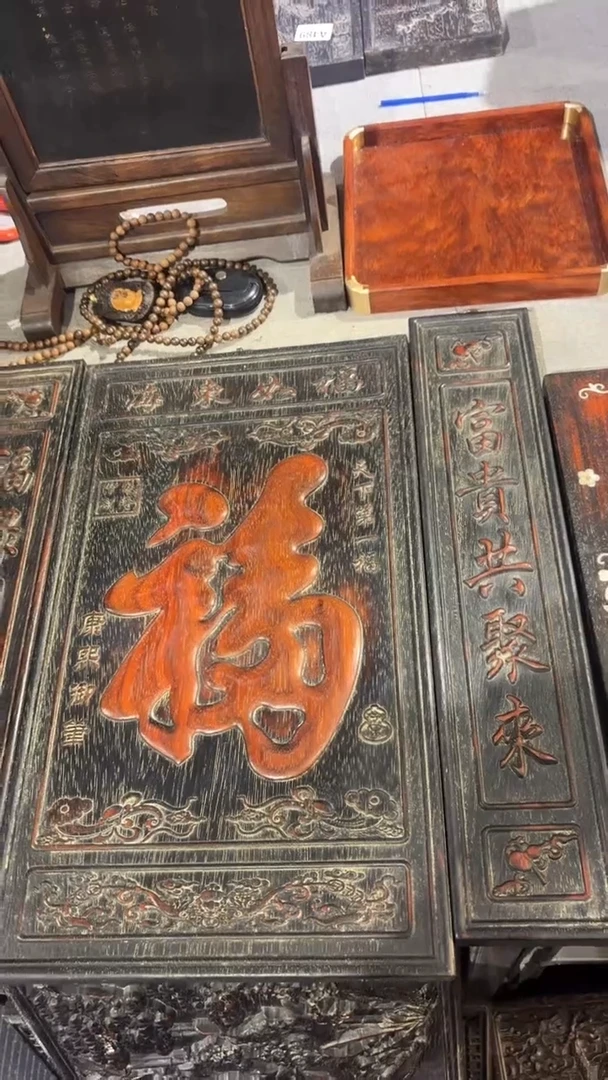 A189
福如東海
天下第一福
福
康熙御筆
富貴共聚來